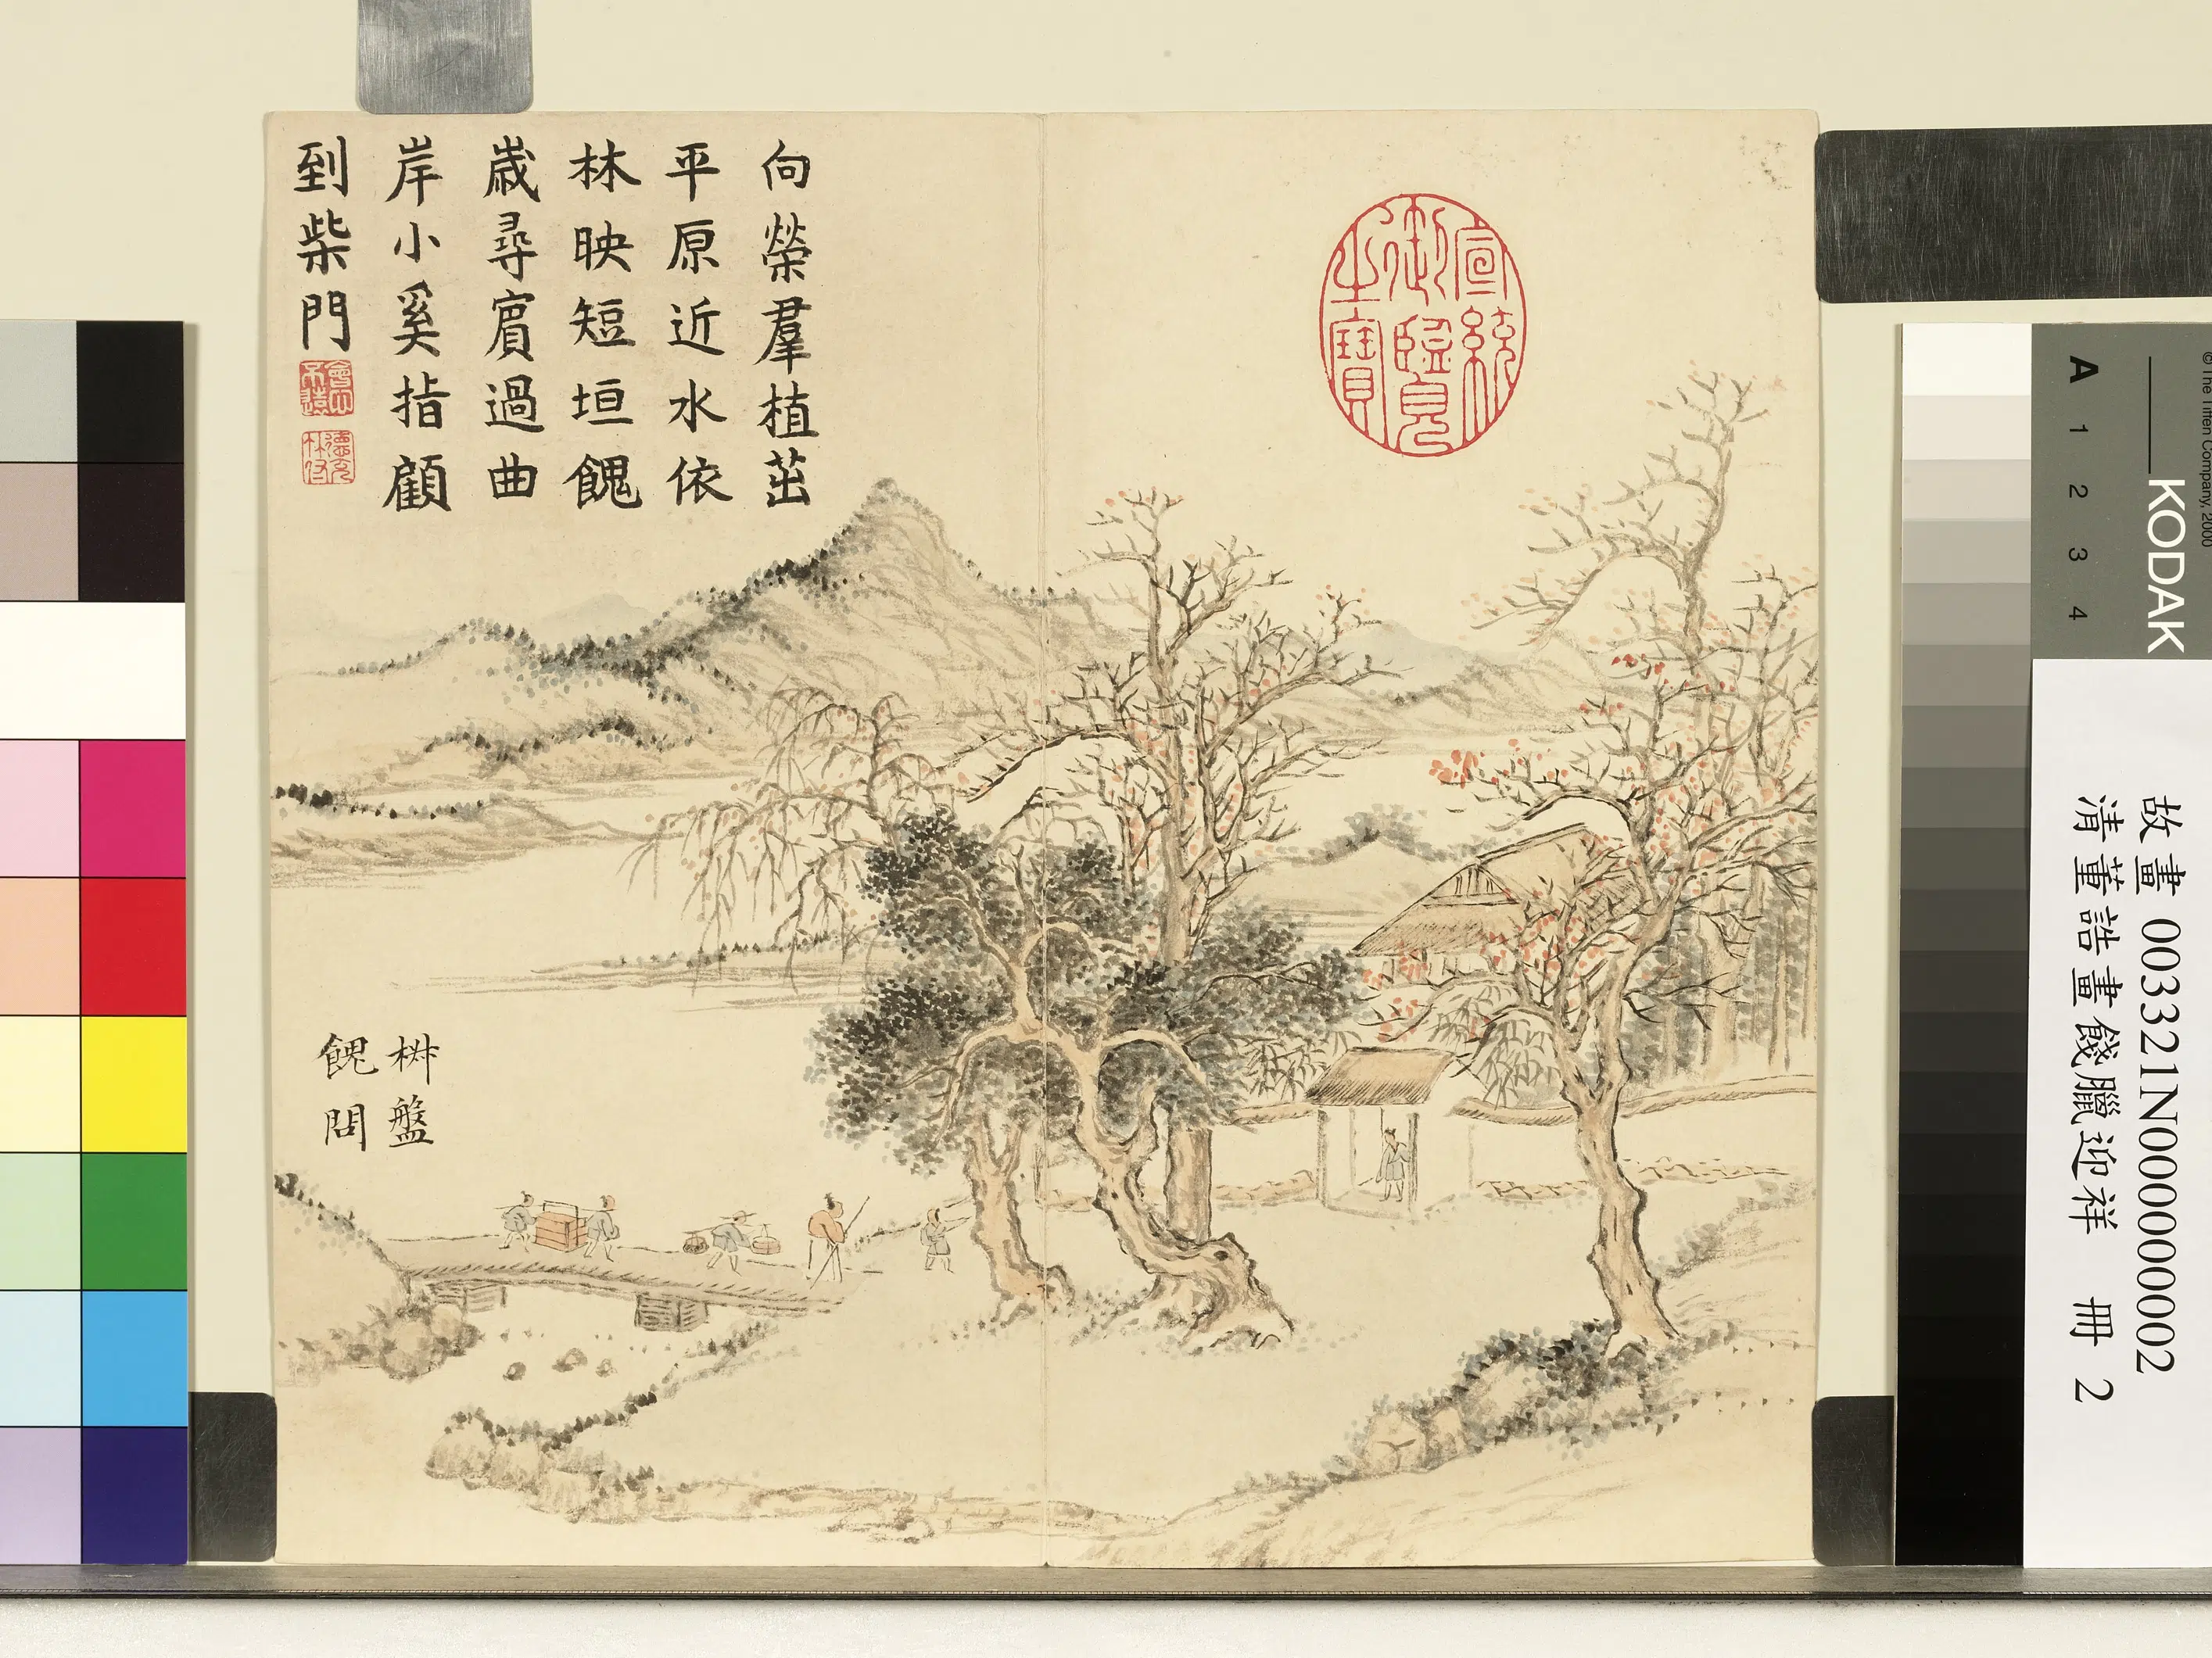 向榮羣植茁
平原近水依
林映短垣餽
嵗尋賓過曲
岸小奚指顧
到柴門
會心不遠
德充符
宣統御覽之寶
盤
餽問
© The Tiffen Company, 2000
KODAK
A 1 2 3 4
故畫 003321N000000002
清董誥畫餞臘迎祥 冊 2